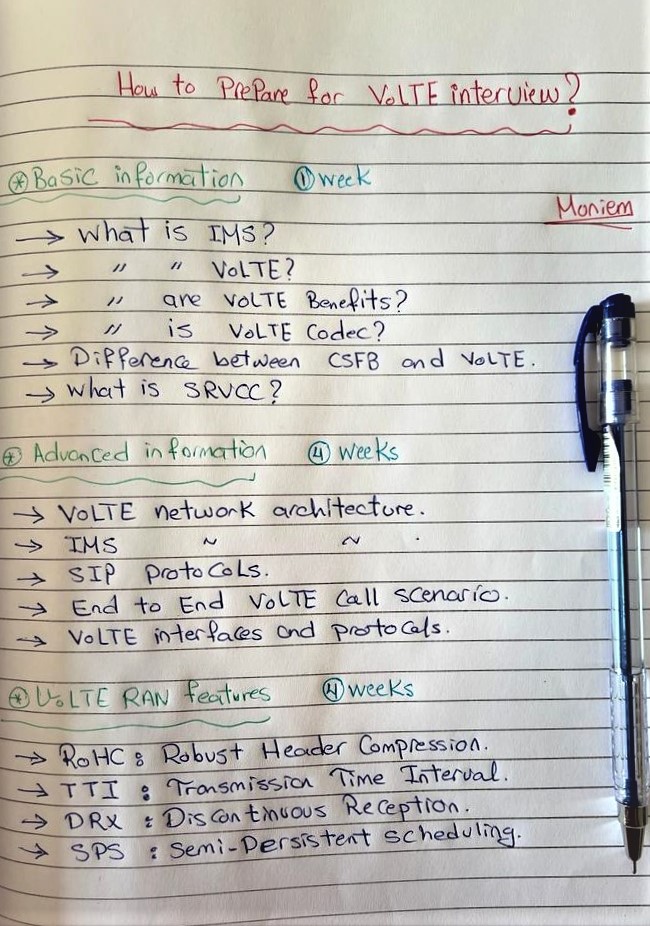 How to Prepare for VoLTE interview?
* Basic information ① week
Moniem
→ What is IMS?
→ " " VoLTE?
→ " are VoLTE Benefits?
→ " is VoLTE Codec?
→ Difference between CSFB and VoLTE.
→ What is SRVCC?
* Advanced information ④ weeks
→ VoLTE network architecture.
→ IMS ~ ~ .
→ SIP Protocols.
→ End to End VoLTE Call scenario.
→ VoLTE interfaces and protocals.
* VoLTE RAN features ④ weeks
→ RoHC : Robust Header Compression.
→ TTI : Transmission Time Interval.
→ DRX : Discontinuous Reception.
→ SPS : Semi-Persistent scheduling.